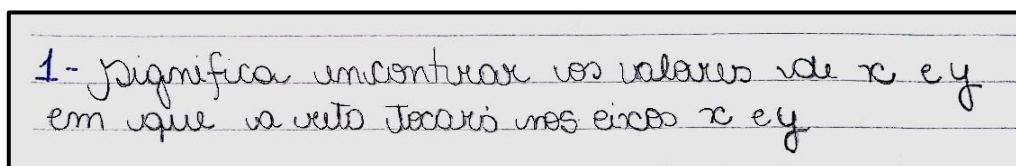 1- Significa encontrar os valores de x e y
em que a reta tocará nos eixos x e y